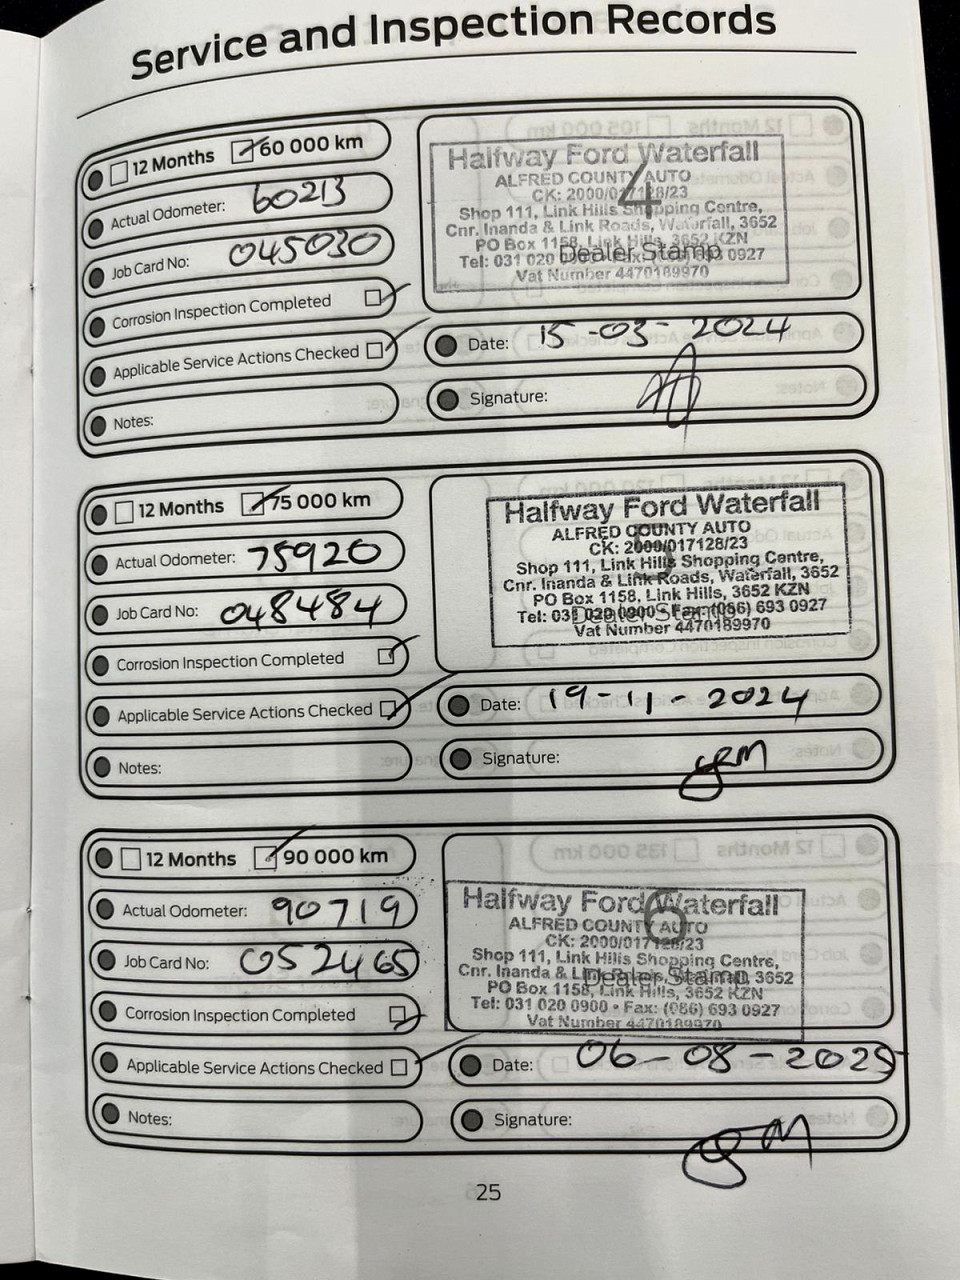 Service and Inspection Records
12 Months 60 000 km
Actual Odometer: 60213
Job Card No: 045030
Corrosion Inspection Completed
Applicable Service Actions Checked
Notes:
4
Dealer Stamp
Halfway Ford Waterfall
ALFRED COUNTY AUTO
CK: 2000/017128/23
Shop 111, Link Hills Shopping Centre,
Cnr. Inanda & Link Roads, Waterfall, 3652
PO Box 1158, Link Hills, 3652 KZN
Tel: 031 020 0900 • Fax: (086) 693 0927
Vat Number 4470189970
Date: 15-03-2024
Signature:
12 Months 75 000 km
Actual Odometer: 75920
Job Card No: 048484
Corrosion Inspection Completed
Applicable Service Actions Checked
Notes:
5
Dealer Stamp
Halfway Ford Waterfall
ALFRED COUNTY AUTO
CK: 2000/017128/23
Shop 111, Link Hills Shopping Centre,
Cnr. Inanda & Link Roads, Waterfall, 3652
PO Box 1158, Link Hills, 3652 KZN
Tel: 031 020 0900 • Fax: (086) 693 0927
Vat Number 4470189970
Date: 19-11-2024
Signature:
12 Months 90 000 km
Actual Odometer: 90719
Job Card No: 052465
Corrosion Inspection Completed
Applicable Service Actions Checked
Notes:
6
Dealer Stamp
Halfway Ford Waterfall
ALFRED COUNTY AUTO
CK: 2000/017128/23
Shop 111, Link Hills Shopping Centre,
Cnr. Inanda & Link Roads, Waterfall, 3652
PO Box 1158, Link Hills, 3652 KZN
Tel: 031 020 0900 • Fax: (086) 693 0927
Vat Number 4470189970
Date: 06-08-2025
Signature:
25